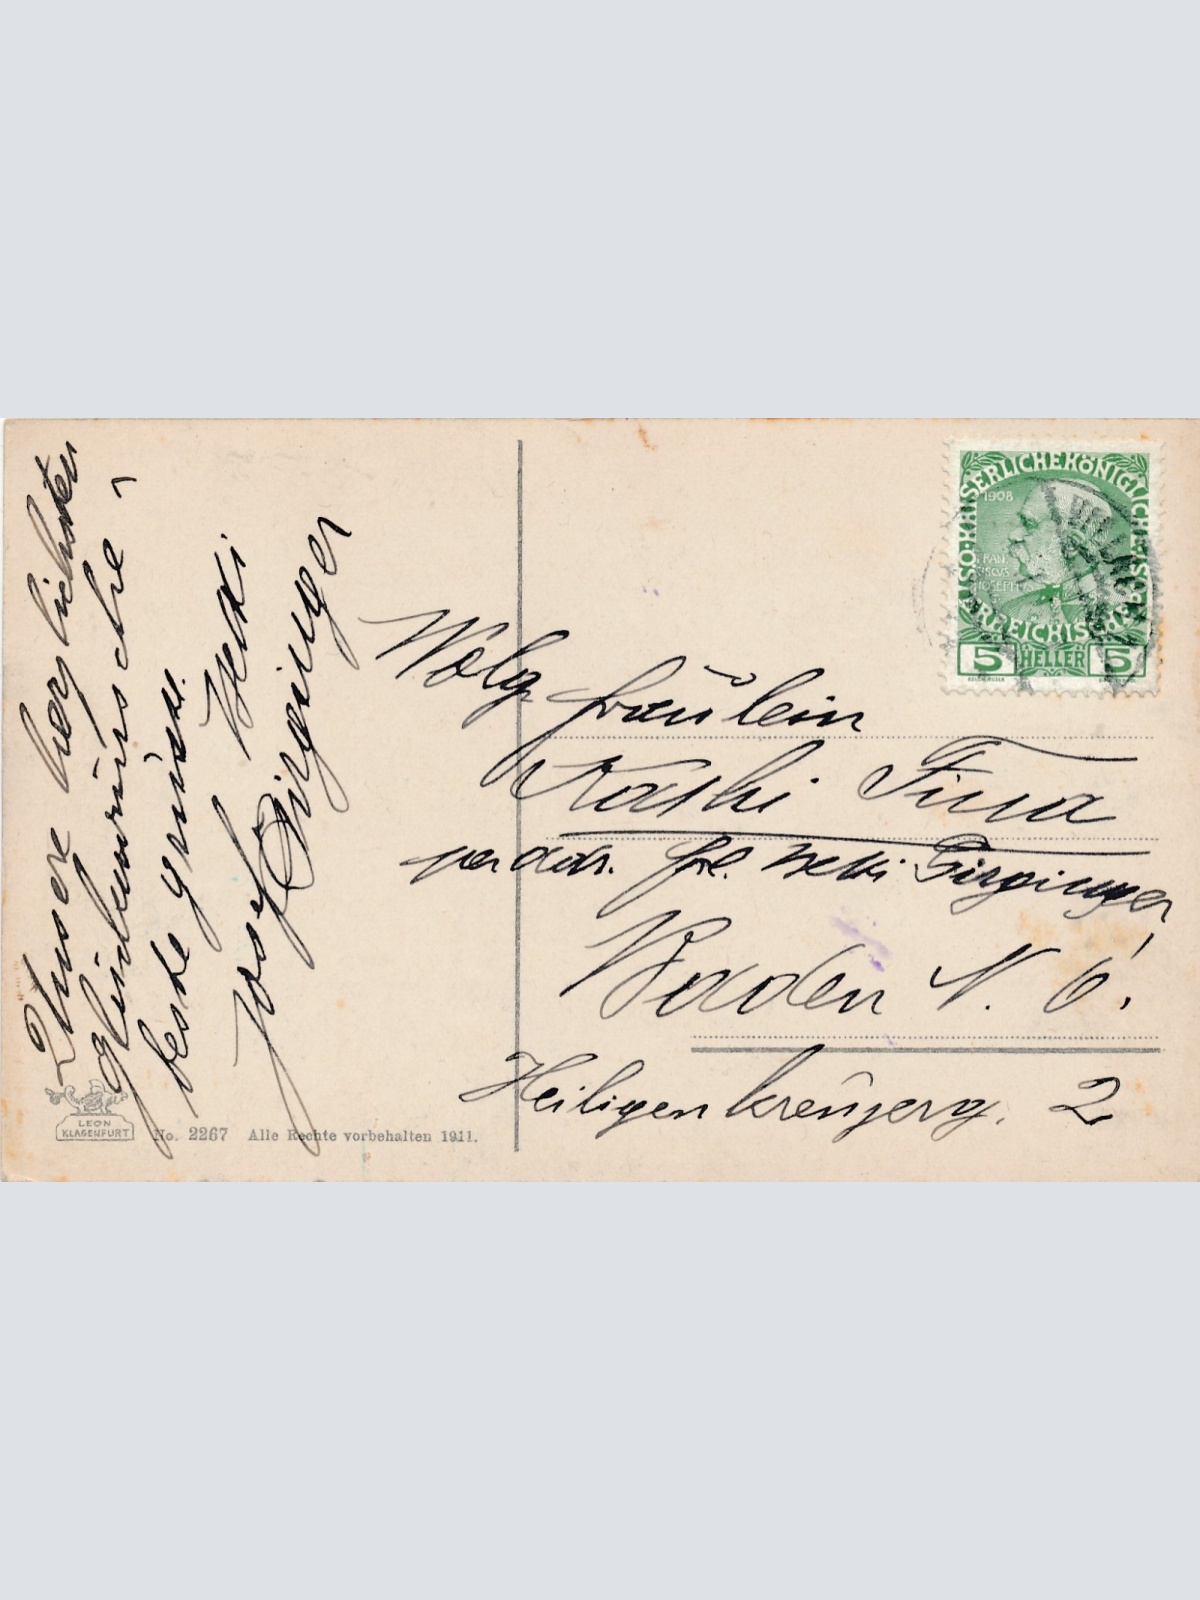 Unsere herzlichsten
Glückwünsche
beste grüsse.
Josef
Girginger
Wolg. Fräulein
Kathi Fina
per adr. Frl. Girginger
Baden N. Ö.
Heiligenkreuzerg. 2
KAISERLICHE KÖNIGLICHE
ÖSTERREICHISCHE
1908
5 HELLER 5
LEON
KLAGENFURT
No. 2267 Alle Rechte vorbehalten 1911.